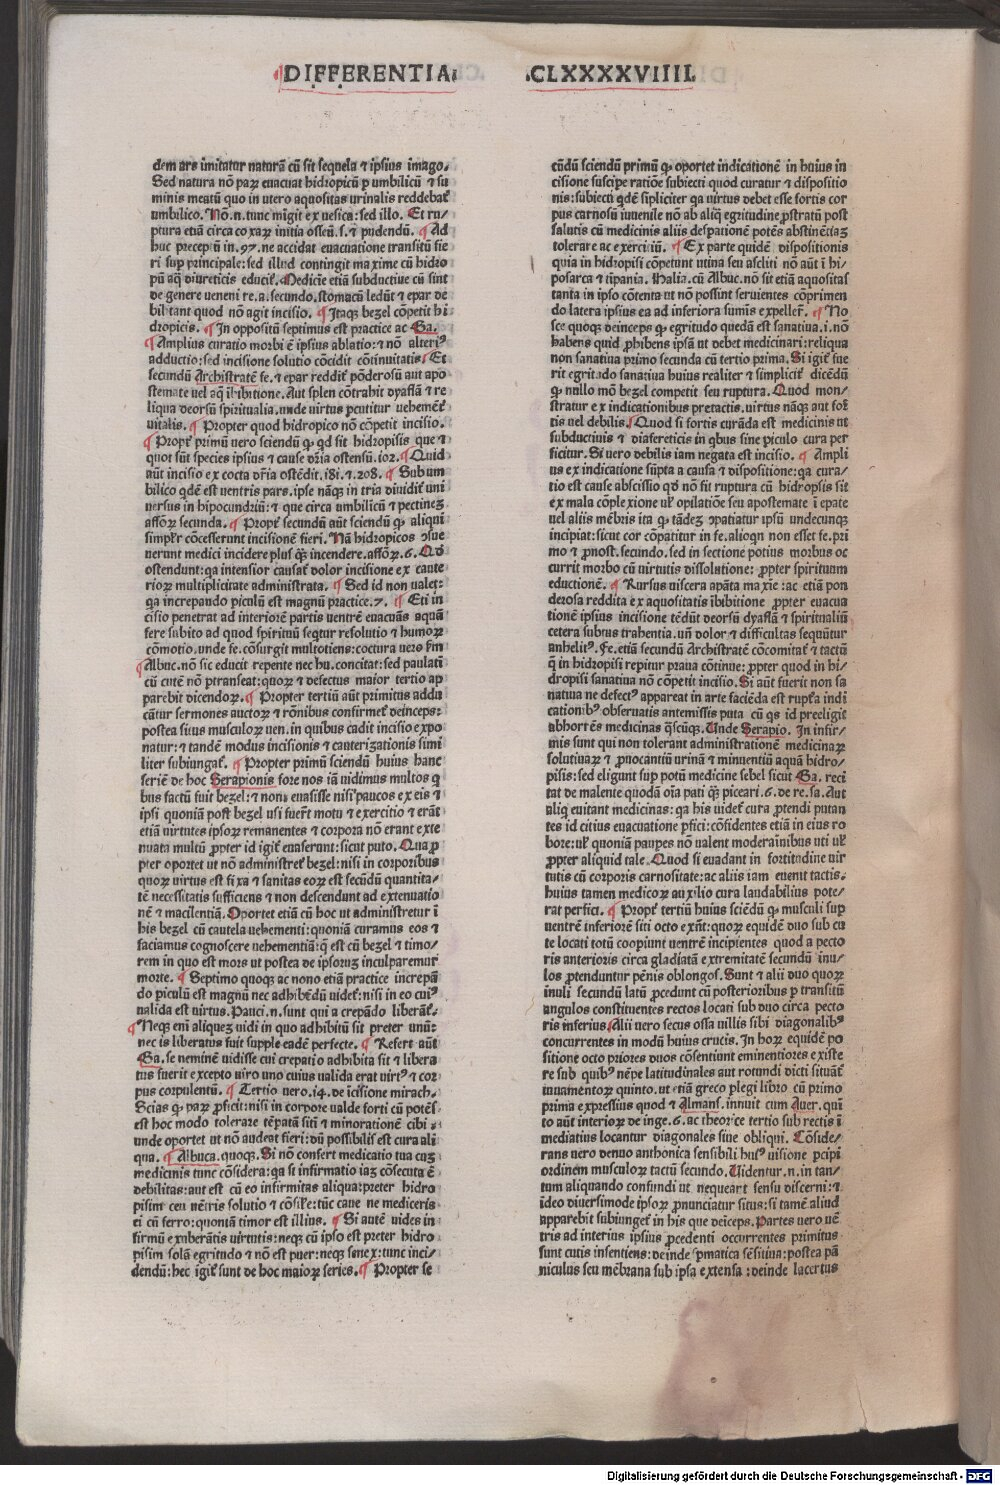 DIFFERENTIA .CLXXXXVIIII.
dem ars imitatur naturã cũ sit sequela ⁊ ipsius imago.
Sed natura nõ paꝝ euacuat hidropicũ p umbilicũ ⁊ su
minis meatũ quo in utero aquositas urinalis reddebat᷑
umbilico. Nõ.n.tunc mĩgit ex uesica: sed illo. Et ru/
ptura etiã circa coxaꝝ initia osseũ.s.⁊ pudendũ. ¶ Ad
huc precepũ in.97.ne accidat euacuatione transitũ fie
ri sup principale: sed illud contingit maxime cũ hidro
pũ aq̃ diureticis educit᷑. Medicie etiã subductiue cũ sint
de genere ueneni re.a.secundo.stomacũ ledũt ⁊ epar de
bilitant quod nõ agit incisio. ¶ Itaqꝫ bezel cõpetit hi
dropicis. ¶ In oppositũ septimus est practice ac Ga.
¶ Amplius curatio morbi ẽ ipsius ablatio: ⁊ nõ alteriꝰ
adductio: sed incisione solutio cõcidit cõtinuitatis. Et
secundũ Archistratẽ fe. ⁊ epar reddit᷑ põderosũ aut apo
stemate uel aq̃ ĩbibitione. Aut splen cõtrahit dyaflã ⁊ re
liqua deorsũ spiritualia. unde uirtus pcutitur uehemẽt᷑
uitalis. ¶ Propter quod hidropico nõ cõpetit incisio.
¶ Propt᷑ primũ uero sciendũ ꝙ qd sit hidropisis que ⁊
quot sũt species ipsius ⁊ cause dr̃ia ostensũ.102. ¶ Quid
aũt incisio ex cocta dr̃ia ostẽdit.181.⁊.208. ¶ Sub um
bilico qdẽ est uentris pars.ipse nãqꝫ in tria diuidit᷑ uni
uersus in hipocundriũ: ⁊ que circa umbilicũ ⁊ pectinez
affoꝝ secunda. ¶ Propt᷑ secundũ aũt sciendũ ꝙ aliqui
simplr̃ cõcesserunt incisionẽ fieri. Nã hidropicos ꝯsue
uerunt medici incidere plus q̃ꝫ incendere.affoꝝ.6. Qđ
ostendunt: qa intensior causat᷑ dolor incisione ex caute
rioꝝ multiplicitate administrata. ¶ Sed id non ualet:
qa increpando piculũ est magnũ practice.7. ¶ Et i in
cisio penetrat ad interiorẽ partis uentrẽ euacuãs aquã
fere subito ad quod spirituũ seqtur resolutio ⁊ humoꝝ
cõmotio.unde fe.cõsurgit multotiens: coctura uero fm
Albuc.nõ sic educit repente nec hu.concitat: sed paulati
cũ cutẽ nõ ptranseat: quoꝝ ⁊ defectus maior tertio ap
parebit dicendoꝝ. ¶ Propter tertiũ aũt primitus addu
cãtur sermones auctoꝝ ⁊ rõnibus confirmet᷑ deinceps:
postea situs musculoꝝ uen.in quibus cadit incisio expo
natur: ⁊ tandẽ modus incisionis ⁊ cauterizationis simi
liter subiungat᷑. ¶ Propter primũ sciendũ huius hanc
seriẽ de hoc Serapionis fore nos iã uidimus multos q
bus factũ fuit bezel: ⁊ non euasisse nisi paucos ex eis ⁊
ipsi quoniã post bezel usi fuer̃t motu ⁊ exercitio ⁊ erãt
etiã uirtutes ipsoꝝ remanentes ⁊ corpora nõ erant exte
nuata multũ propter id igit᷑ euaserunt: sicut puto. Qua p
pter oportet ut nõ administret᷑ bezel: nisi in corporibus
quoꝝ uirtus est fixa ⁊ sanitas eoꝝ est secũdũ quantita/
tẽ necessitatis sufficiens ⁊ non descendunt ad extenuatio
nẽ ⁊ macilentiã. Oportet etiã cũ hoc ut administretur ĩ
his bezel cũ cautela uehementi: quoniã curamus eos ⁊
faciamus cognoscere uehementiã: q̃ est cũ bezel ⁊ timo/
rem in quo est mors ut postea de ipsorũz inculparemur
morte. ¶ Septimo quoqꝫ ac nono etiã practice increpã
do piculũ est magnũ nec adhibẽdũ uidet᷑: nisi in eo cuiꝰ
ualida est uirtus. Pauci.n.sunt qui a crepãdo liberãt᷑.
¶ Neqꝫ eni aliquez uidi in quo adhibitũ sit preter unũ:
nec is liberatus fuit supple eadẽ perfecte. ¶ Refert aũt
Ga.se neminẽ uidisse cui crepatio adhibita sit ⁊ libera
tus fuerit excepto uiro uno cuius ualida erat uirtꝰ ⁊ cor
pus corpulentũ. ¶ Tertio uero.14.de ĩcisione mirach.
Scias ꝙ paꝝ pficit: nisi in corpore ualde forti cũ potẽs
est hoc modo tolerare tẽpatã sitĩ ⁊ minorationẽ cibi:
unde oportet ut nõ audeat fieri: dũ possibilis est cura ali
qua. ¶ Albuca.quoqꝫ. Si nõ confert medicatio tua cuꝫ
medicinis tunc cõsidera: qa si infirmatio iaꝫ cõsecuta ẽ
debilitas: aut est cũ eo infirmitas aliqua: preter hidro
pisim ceu uẽtris solutio ⁊ cõsil᷑e: tũc caue ne mediceris
ei cũ ferro: quoniã timor est illius. ¶ Si autẽ uides in
firmũ exuberãtis uirtutis: neqꝫ cũ ipso est preter hidro
pisim solã egritudo ⁊ nõ est puer: neqꝫ senex: tunc inci/
dendũ: hec igit᷑ sunt de hoc maioꝝ series. ¶ Propter se
cũdũ sciendũ primũ ꝙ oportet indicationẽ in huius in
cisione suscipe ratiõe subiecti quod curatur ⁊ dispositio
nis: subiecti qdẽ sĩpliciter qa uirtus debet esse fortis cor
pus carnosũ iuuenile nõ ab aliq̃ egritudine pstratũ post
salutis cũ medicinis aliis despationẽ potẽs abstinẽtiaꝫ
tolerare ac exercitiũ. ¶ Ex parte quidẽ dispositionis
quia in hidropisi cõpetunt utina seu ascliti nõ aũt ĩ hi/
posarca ⁊ tĩpania. Halia.cũ Albuc.nõ sit etiã aquositas
tanta in ipso cõtenta ut nõ possint seruientes cõprimen
do latera ipsius ea ad inferiora sumĩs expeller᷑. ¶ No
sce quoqꝫ deinceps ꝙ egritudo quedã est sanatiua.i.nõ
habens quid prohibens ipsã ut debet medicinari: reliqua
non sanatiua primo secunda cũ tertio prima. Si igit᷑ fue
rit egritudo sanatiua huius realiter ⁊ simplicit᷑ dicẽdũ
ꝙ nullo mõ bezel competit seu ruptura. Quod mon/
stratur ex indicationibus pretactis.uirtus nãqꝫ aut for
tis uel debilis. Quod si fortis curãda est medicinis ut
subductiuis ⁊ diaforeticis in qbus sine piculo cura per
ficitur. Si uero debilis iam negata est incisio. ¶ Ampli
us ex indicatione sũpta a causa ⁊ dispositione: qa cura/
tio est cause abscissio qđ nõ fit ruptura cũ hidropsis sit
ex mala cõplexione uel᷑ opilatiõe seu apostemate ĩ epate
uel aliis mẽbris ita ꝙ tãdeꝫ ꝯpatiatur ipsũ undecunqꝫ
incipiat: sicut cor cõpatitur in fe.alioqn non esset fe.pri
mo ⁊ pnost.secundo.sed in sectione potius morbus oc
currit morbo cũ uirtutis dissolutione: ppter spirituum
eductionẽ. ¶ Rursus uiscera apãta maxie: ac etiã pon
derosa reddita ex aquositatis ĩbibitione ppter euacua
tionẽ ipsius incisione tẽdũt deorsũ dyaflã ⁊ spiritualiũ
cetera subtus trahentia.uñ dolor ⁊ difficultas sequũtur
anhelitꝰ. Fe.etiã secundũ Archistratẽ cõcomitat᷑ ⁊ tactũ
q̃ in hidropisi repitur praua cõtinue: ppter quod in hi/
dropisi sanatiua nõ cõpetit incisio. Si aũt fuerit non sa
natiua ne defectꝰ appareat in arte faciẽda est ruptra indi
cationibꝰ obseruatis antemissis puta cũ qs id preeligit᷑
abhorrẽs medicinas q̃scũqꝫ. Unde Serapio. In infir/
mis sunt qui non tolerant administrationẽ medicinaꝝ
solutiuaꝝ ⁊ puocantiũ urinã ⁊ minuentiũ aquã hidro/
pisis: sed eligunt sup potũ medicine sebel sicut Ga.reci
tat de malente quodã oia pati q̃ꝫ piceari.6.de re.sa. Aut
aliq̃ euitant medicinas: qa his uidet᷑ cura ptendi putan
tes id citius euacuatione pfici: cõfidentes etiã in eius ro
bore: uel᷑ quoniã paupes nõ ualent moderaĩnibus uti uel᷑
ppter aliquid tale. Quod si euadant in fortitudine uir
tutis cũ corporis carnositate: ac aliis iam euenit tactis.
huius tamen medicoꝝ auxilio cura laudabilius pote/
rat perfici. ¶ Propt᷑ tertiũ huius sciẽdũ ꝙ musculi sup
uentrẽ inferiorẽ siti octo exñt: quoꝝ equidẽ duo sub cu
te locati totũ coopiunt uentrẽ incipientes quod a pecto
ris anterioris circa gladiatã extremitatẽ secundũ inu/
los ptenduntur pẽnis oblongos. Sunt ⁊ alii duo quoꝝ
inuli secundũ latũ pcedunt cũ posterioribus p transitũ
angulos constituentes rectos locati sub duo circa pecto
ris inferius. Alii uero secus ossa uillis sibi diagonalibꝰ
concurrentes in modũ huius crucis. In hoꝝ equidẽ po
sitione octo priores duos cõsentiunt eminentiores existe
re sub quibꝰ nẽpe latitudinales aut rotundi dicti situãt᷑
iuuamentoꝝ quinto.ut etiã greco plegi libro cũ primo
prima expressius quod ⁊ Almans.innuit cum Auer.qui
to aũt interioꝝ de inge.6.ac theorice tertio sub rectis ĩ
mediatius locantur diagonales siue obliqui. Cõside/
rans uero denuo anthonica sensibili huiꝰ uisione pcipi
ordinem musculoꝝ tactũ secundo. Uidentur.n.in tan/
tum aliquando confundi ut nequeart sensu discerni: ⁊
ideo diuersimode ipsoꝝ pronunciatur situs: si tamẽ aliud
apparebit subiunget᷑ in his que deiceps. Partes uero uẽ
tris ad interius ipsius pcedenti occurrentes primitus
sunt cutis insentiens: deinde spmatica sẽsitiua: postea pã
niculus seu mẽbrana sub ipsa extensa: deinde lacertus
Digitalisierung gefördert durch die Deutsche Forschungsgemeinschaft - DFG